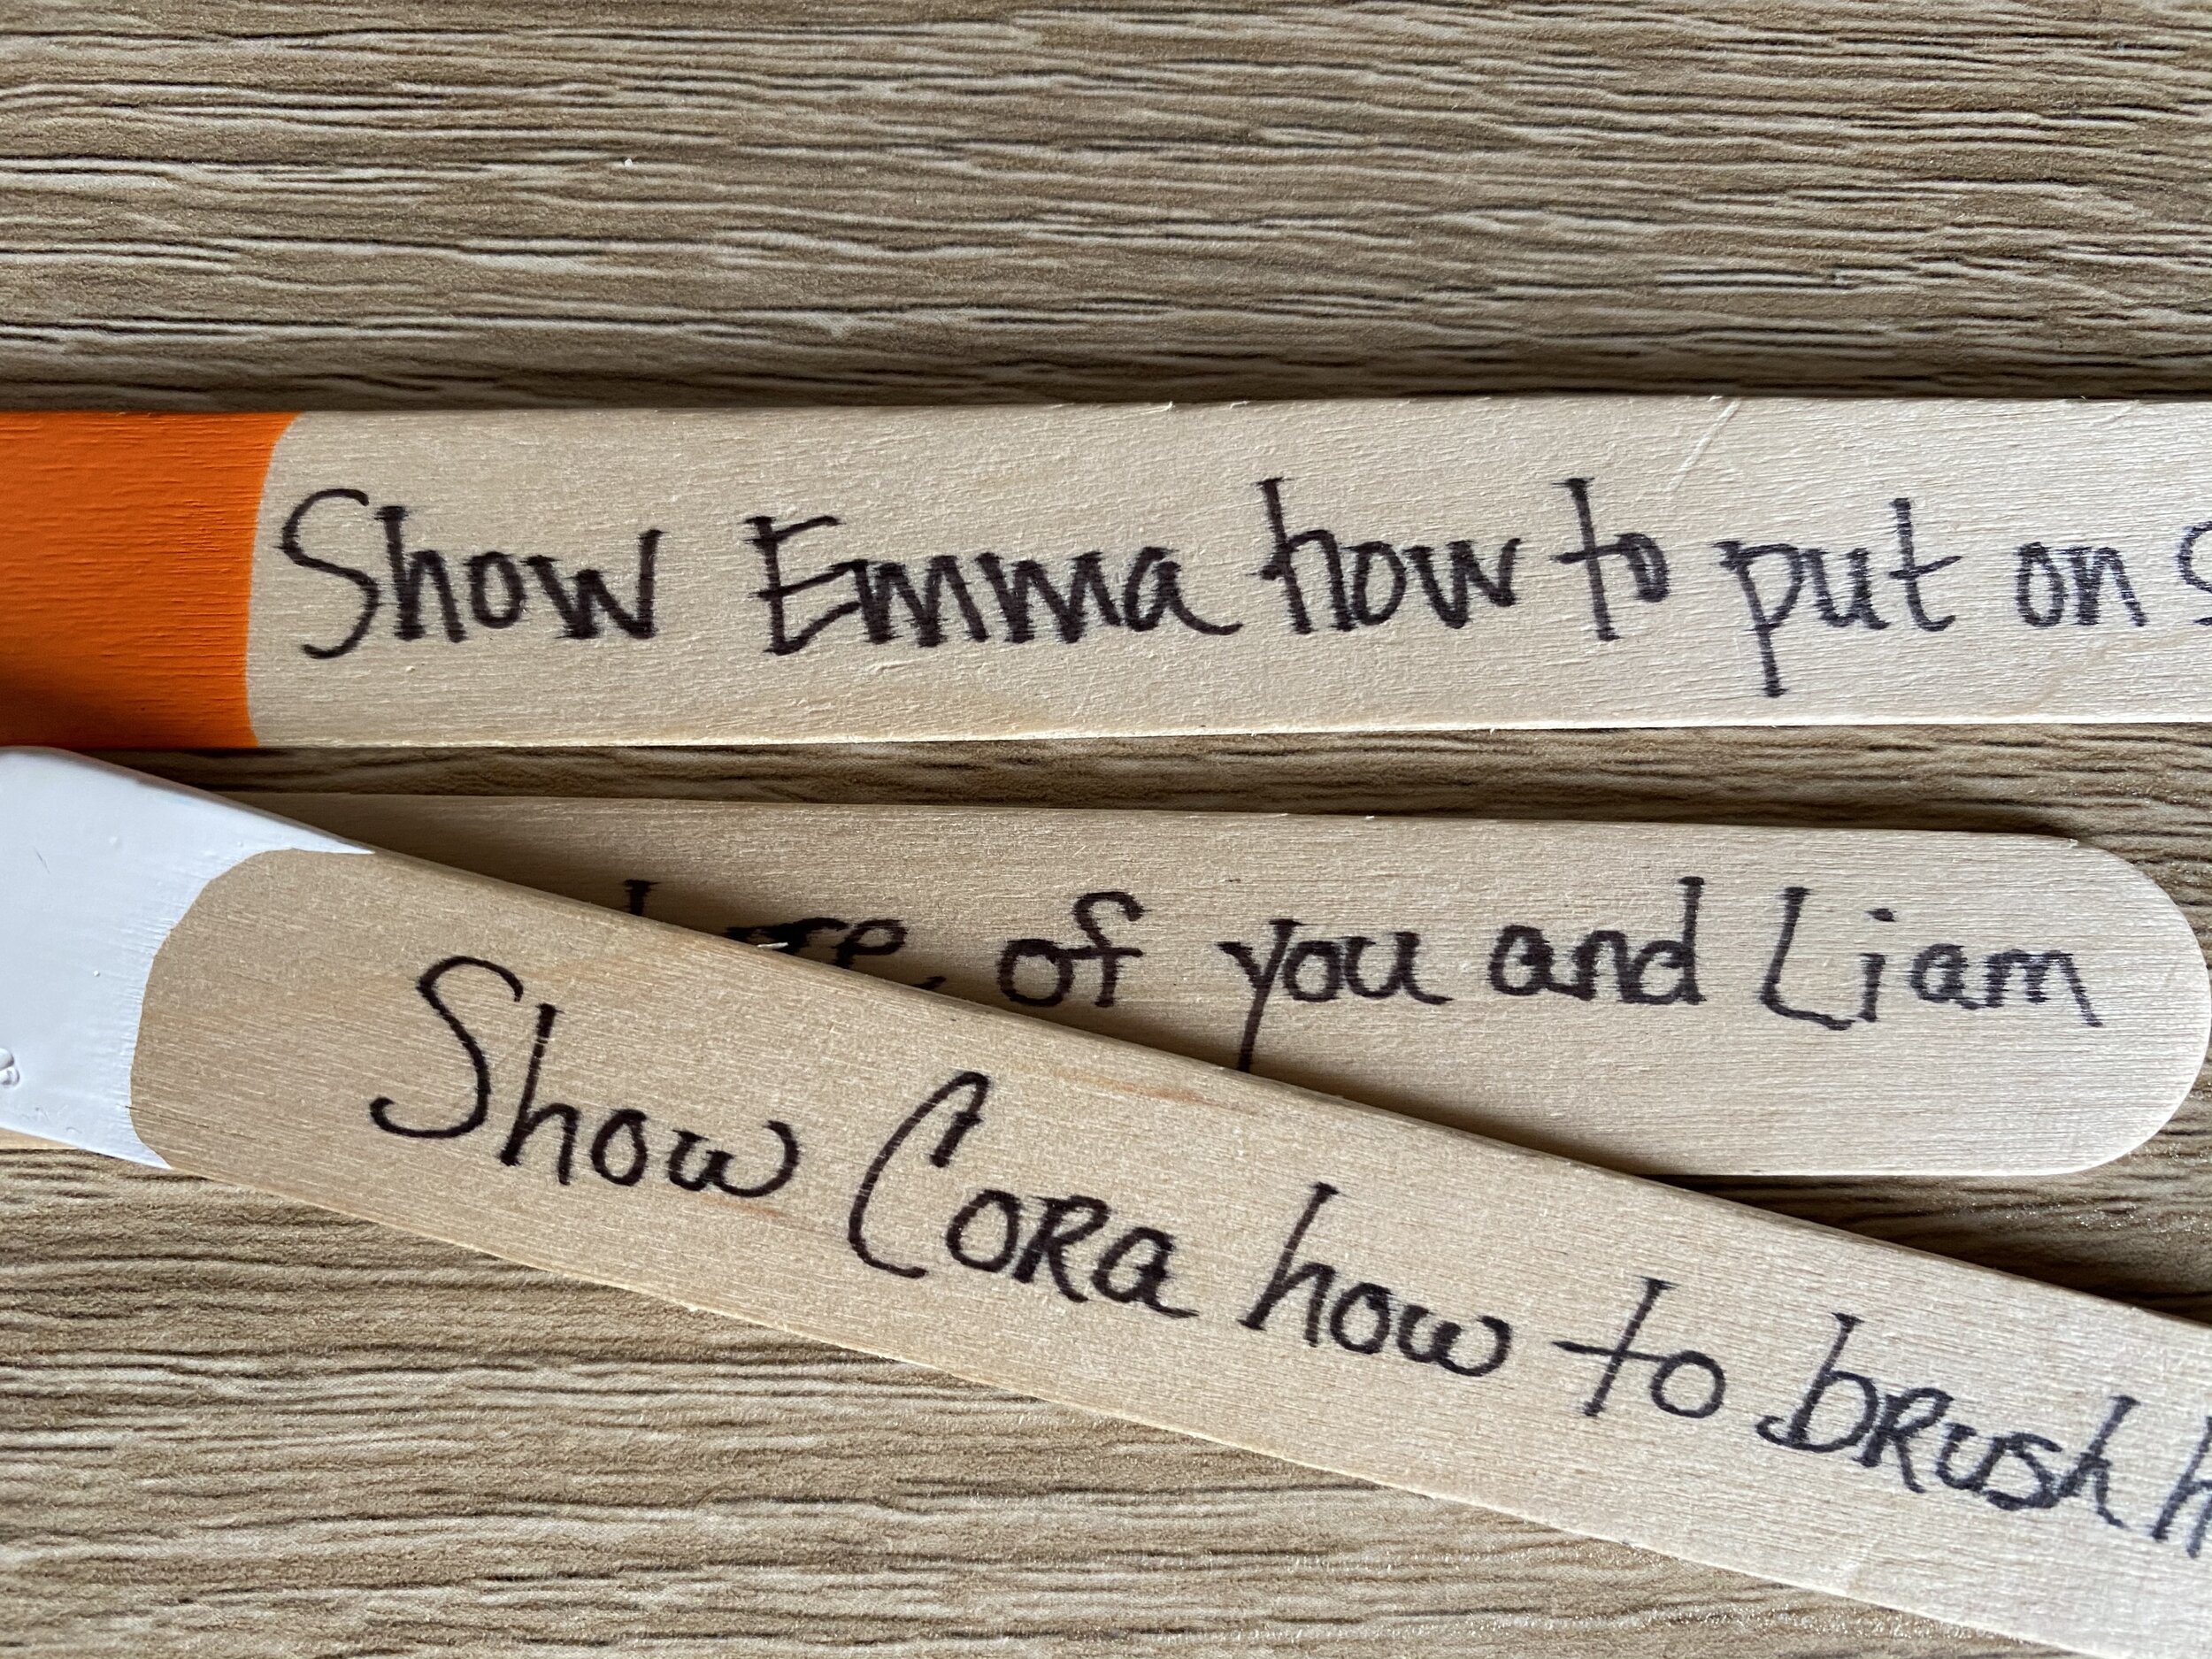 Show Emma how to put on
of you and Liam
Show Cora how to brush